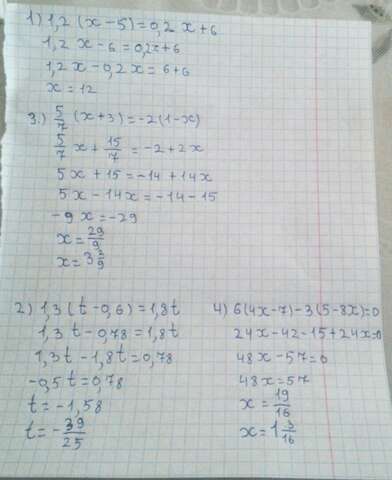 1) 1,2 (x-5)=0,2x+6
1,2x-6=0,2x+6
1,2x-0,2x=6+6
x=12
3.) 5/7 (x+3)=-2(1-x)
5/7 x+15/7=-2+2x
5x+15=-14+14x
5x-14x=-14-15
-9x=-29
x=29/9
x=3 2/9
2) 1,3(t-0,6)=1,8t
1,3t-0,78=1,8t
1,3t-1,8t=0,78
-0,5t=0,78
t=-1,58
t=-39/25
4) 6(4x-7)-3(5-8x)=0
24x-42-15+24x=0
48x-57=0
48x=57
x=19/16
x=1 3/16